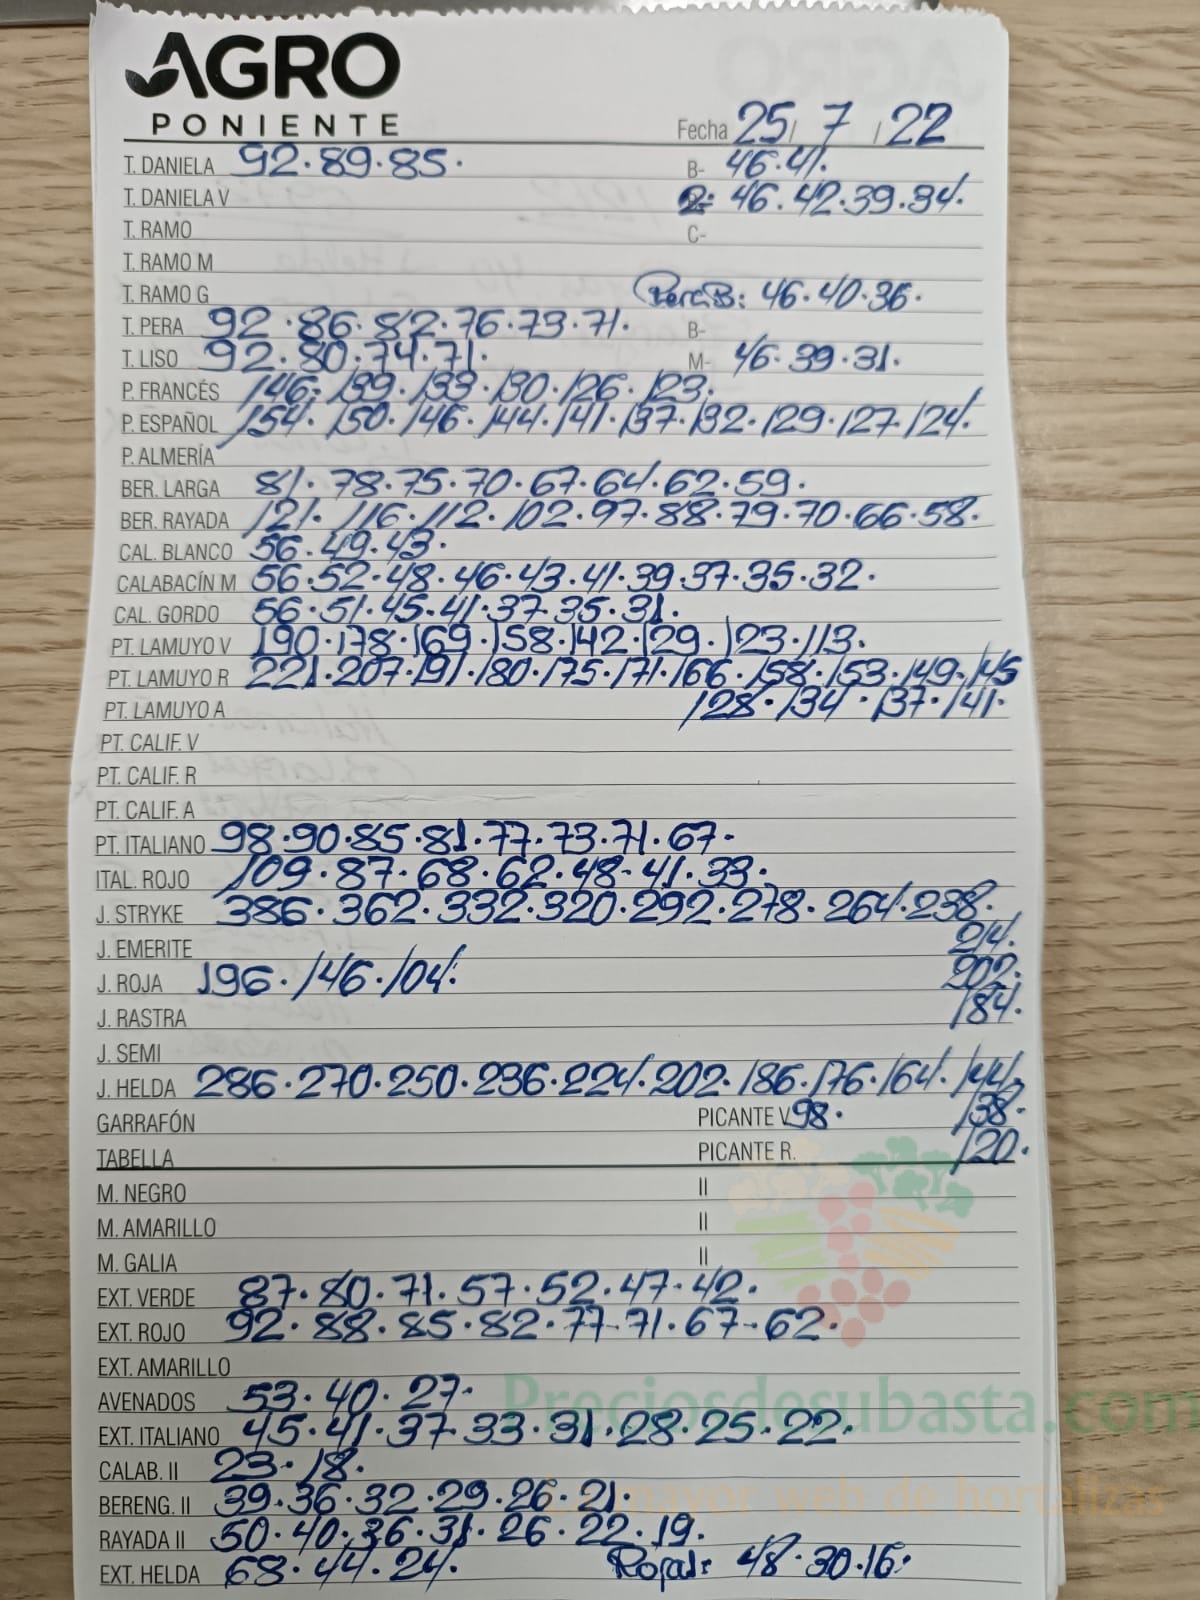 AGRO
PONIENTE
Fecha 25/ 7 /22
T. DANIELA 92.89.85. B- 46.41.
T. DANIELA V 2: 46.42.39.34.
T. RAMO C-
T. RAMO M
T. RAMO G Pera B: 46.40.36.
T. PERA 92.86.82.76.73.71. B-
T. LISO 92.80.74.71. M- 46.39.31.
P. FRANCÉS 146.139.133.130.126.123.
P. ESPAÑOL 154.150.146.144.141.137.132.129.127.124.
P. ALMERÍA
BER. LARGA 81.78.75.70.67.64.62.59.
BER. RAYADA 121.116.112.102.97.88.79.70.66.58.
CAL. BLANCO 56.49.43.
CALABACÍN M 56.52.48.46.43.41.39.37.35.32.
CAL. GORDO 56.51.45.41.37.35.31.
PT. LAMUYO V 190.178.169.158.142.129.123.113.
PT. LAMUYO R 221.207.191.180.175.171.166.158.153.149.145
PT. LAMUYO A 128.134.137.141.
PT. CALIF. V
PT. CALIF. R
PT. CALIF. A
PT. ITALIANO 98.90.85.81.77.73.71.67.
ITAL. ROJO 109.87.68.62.48.41.33.
J. STRYKE 386.362.332.320.292.278.264.238.
J. EMERITE 214.
J. ROJA 196.146.104. 202.
J. RASTRA 184.
J. SEMI
J. HELDA 286.270.250.236.224.202.186.176.164.144.
GARRAFÓN PICANTE V. 98. 138.
TABELLA PICANTE R. 120.
M. NEGRO II
M. AMARILLO II
M. GALIA II
EXT. VERDE 87.80.71.57.52.47.42.
EXT. ROJO 92.88.85.82.77.71.67.62.
EXT. AMARILLO
AVENADOS 53.40.27.
Preciosdesubasta.com
EXT. ITALIANO 45.41.37.33.31.28.25.22.
CALAB. II 23.18.
BERENG. II 39.36.32.29.26.21.
mayor web de hortalizas
RAYADA II 50.40.36.31.26.22.19.
EXT. HELDA 68.44.24. Roja: 48.30.16.